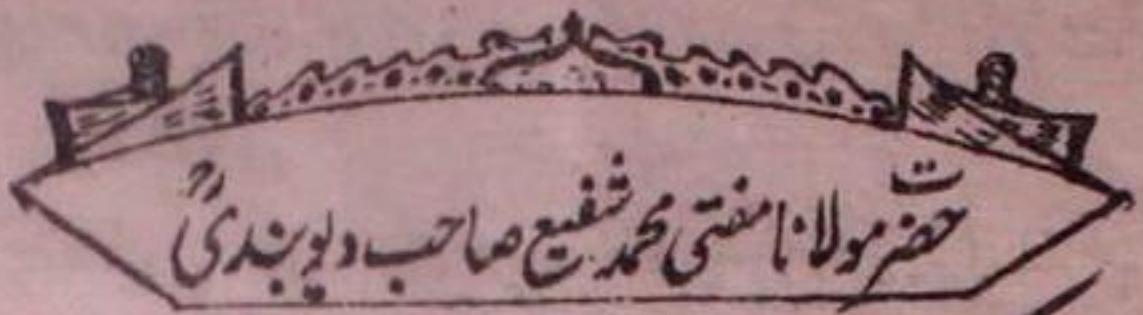 حضرت مولانا مفتی محمد شفیع صاحب دیوبندیؒ